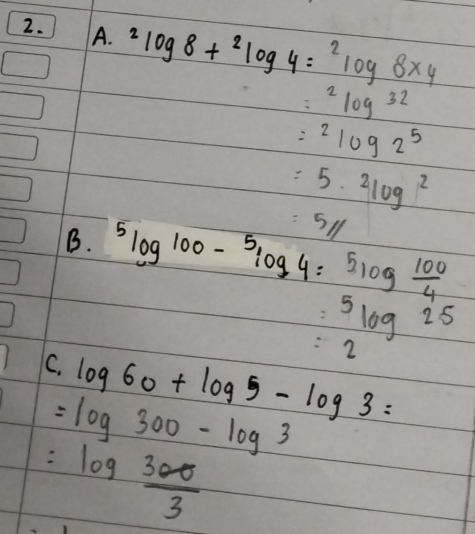 2.
A. ²log 8 + ²log 4 = ²log 8×4
= ²log 32
= ²log 2⁵
= 5 . ²log 2
= 5//
B. ⁵log 100 - ⁵log 4 = ⁵log 100/4
= ⁵log 25
= 2
C. log 60 + log 5 - log 3 =
= log 300 - log 3
= log 300/3